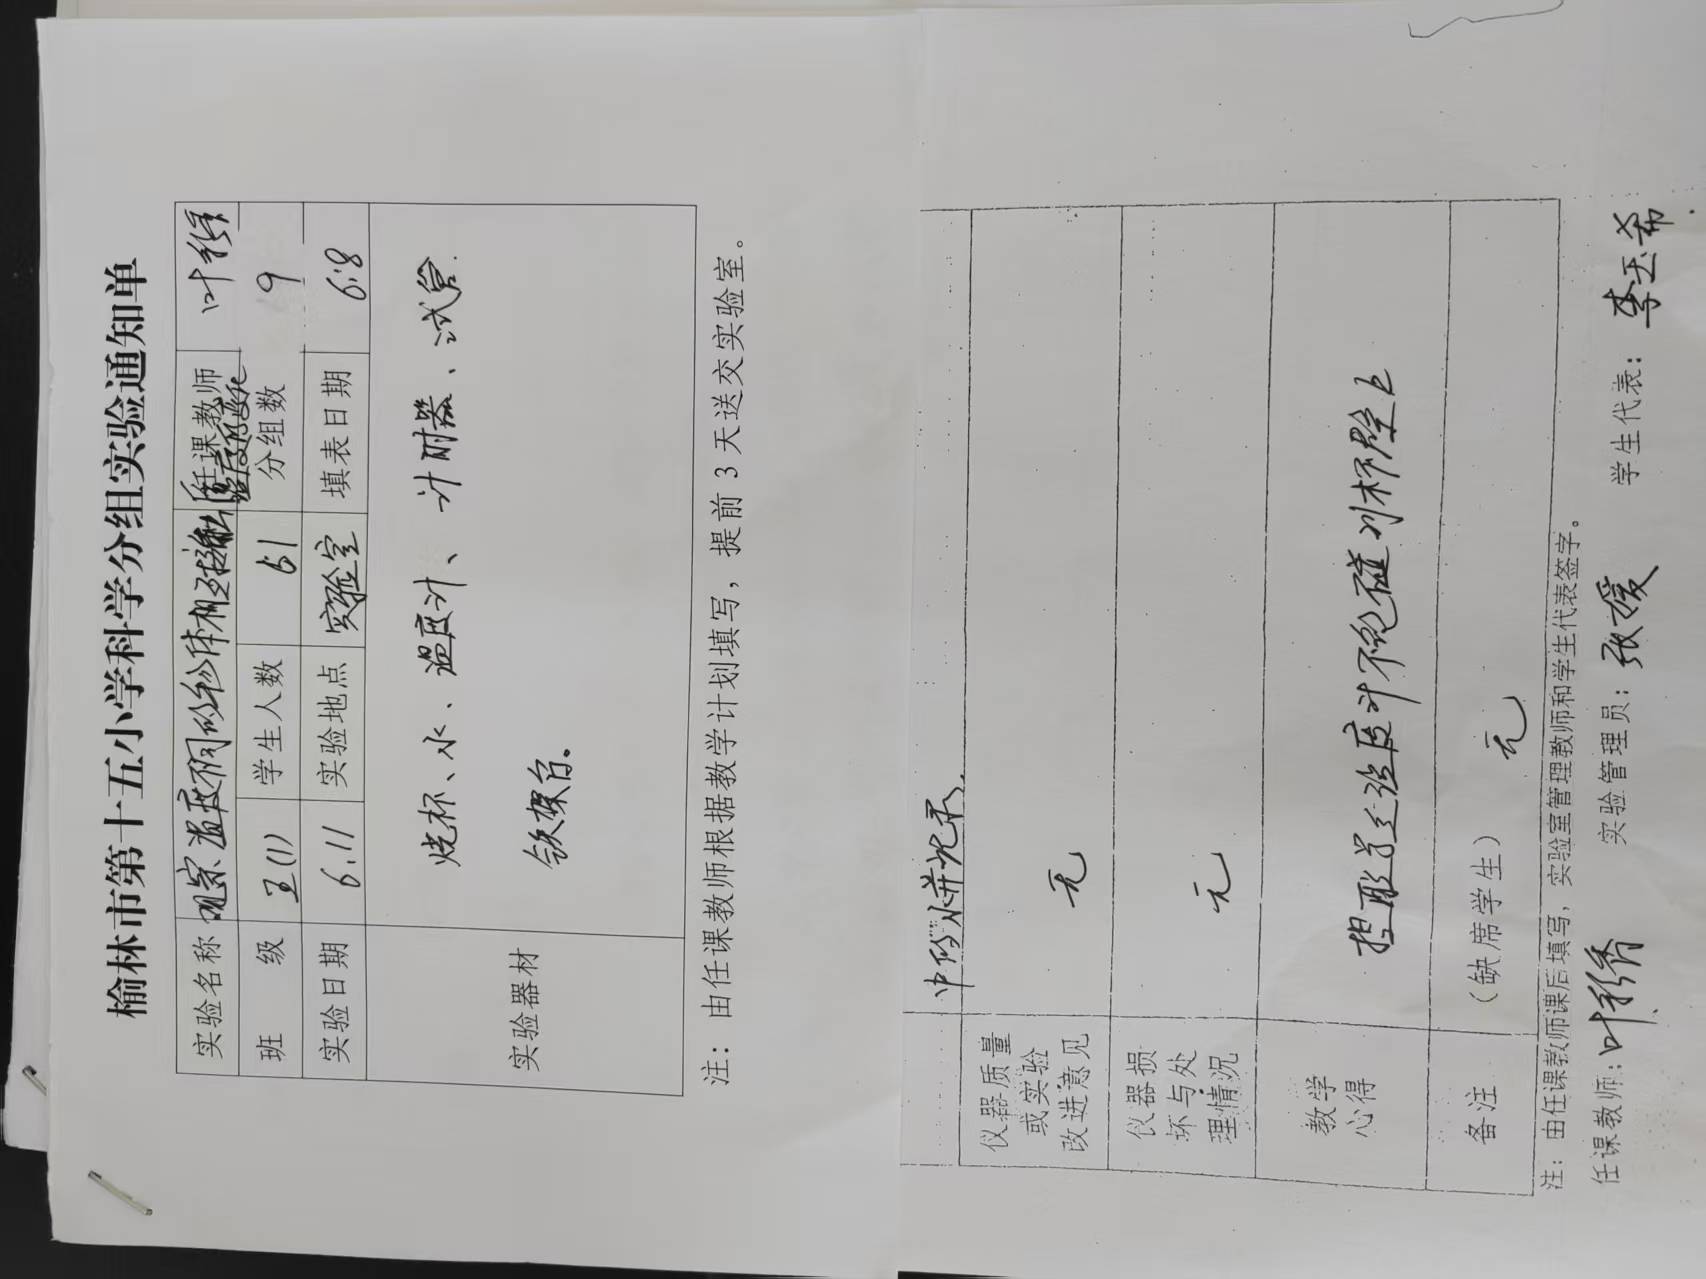 榆林市第十五小学科学分组实验通知单
实验名称 温度不同的物体相互接触 任课教师 叶
班 级 五(1) 学生人数 61 分组数 9
实验日期 6.11 实验地点 实验室 填表日期 6.8
实验器材 烧杯、水、温度计、计时器、试管.
铁架台。
注：由任课教师根据教学计划填写，提前3天送交实验室。
并记录.
仪器质量或实验改进意见 无
仪器损坏与处理情况 无
教学心得 提醒学生温度计不能碰到杯壁上
备注 （缺席学生） 无
注：由任课教师课后填写，实验室管理教师和学生代表签字。
任课教师：叶 实验管理员：张媛 学生代表：李玉希